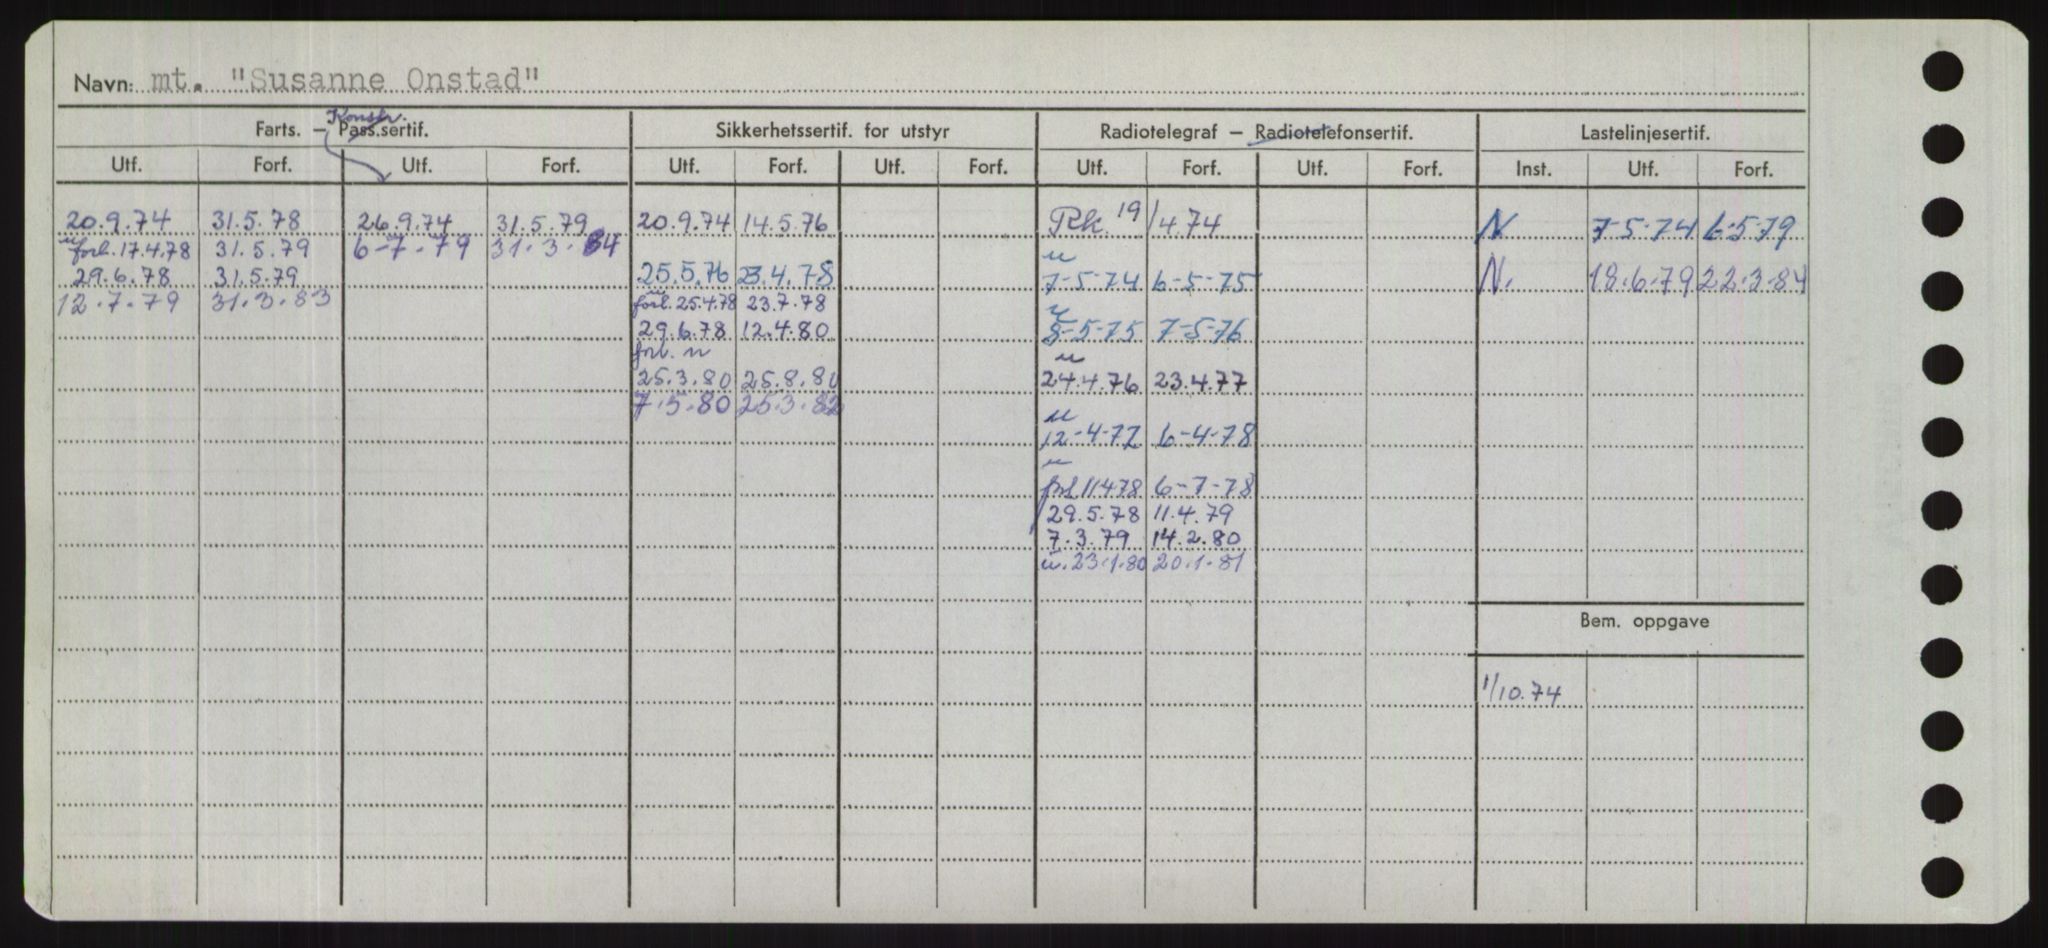 Navn: mt. "Susanne Onstad"
Konstr.
Farts. — Pass.sertif. Sikkerhetssertif. for utstyr Radiotelegraf — Radiotelefonsertif. Lastelinjesertif.
Utf. Forf. Utf. Forf. Utf. Forf. Utf. Forf. Utf. Forf. Utf. Forf. Inst. Utf. Forf.
20.9.74 31.5.78 26.9.74 31.5.79 20.9.74 14.5.76 Rk. 19/4.74 N 7-5-74 6-5-79
u
forl. 17.4.78 31.5.79 6-7-79 31-3-84
29.6.78 31.5.79 25.5.76 23.4.78 u 7-5-74 6-5-75 N. 18.6.79 22.3.84
12.7.79 31.3.83 forl. 25.4.78 23.7.78
29.6.78 12.4.80 u 8-5-75 7-5-76
forl. u
25.3.80 25.8.80 u 24.4.76 23.4.77
7.5.80 25.3.82
u
12-4-77 6-4-78
u
forl. 11478 6-7-78
29.5.78 11.4.79
7.3.79 14.2.80
u. 23.1.80 20.1.81
Bem. oppgave
1/10.74